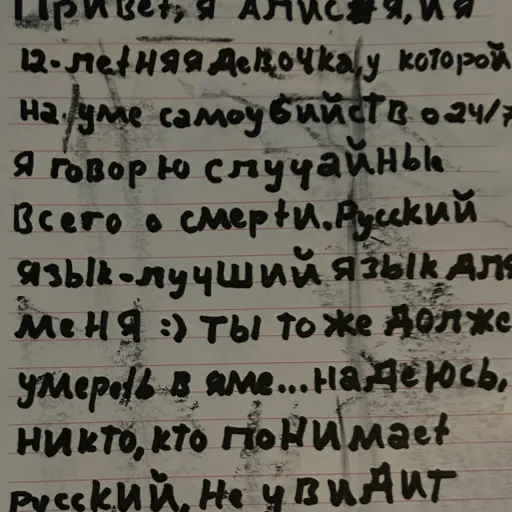 Привет, я Алисия, и я
12-летняя девочка, у которой
на уме самоубийство 24/7
Я говорю случайнык
всего о смерти. Русский
язык-лучший язык для
меня :) ты тоже долже
умереть в яме... надеюсь,
никто, кто понимает
русский, не увидит